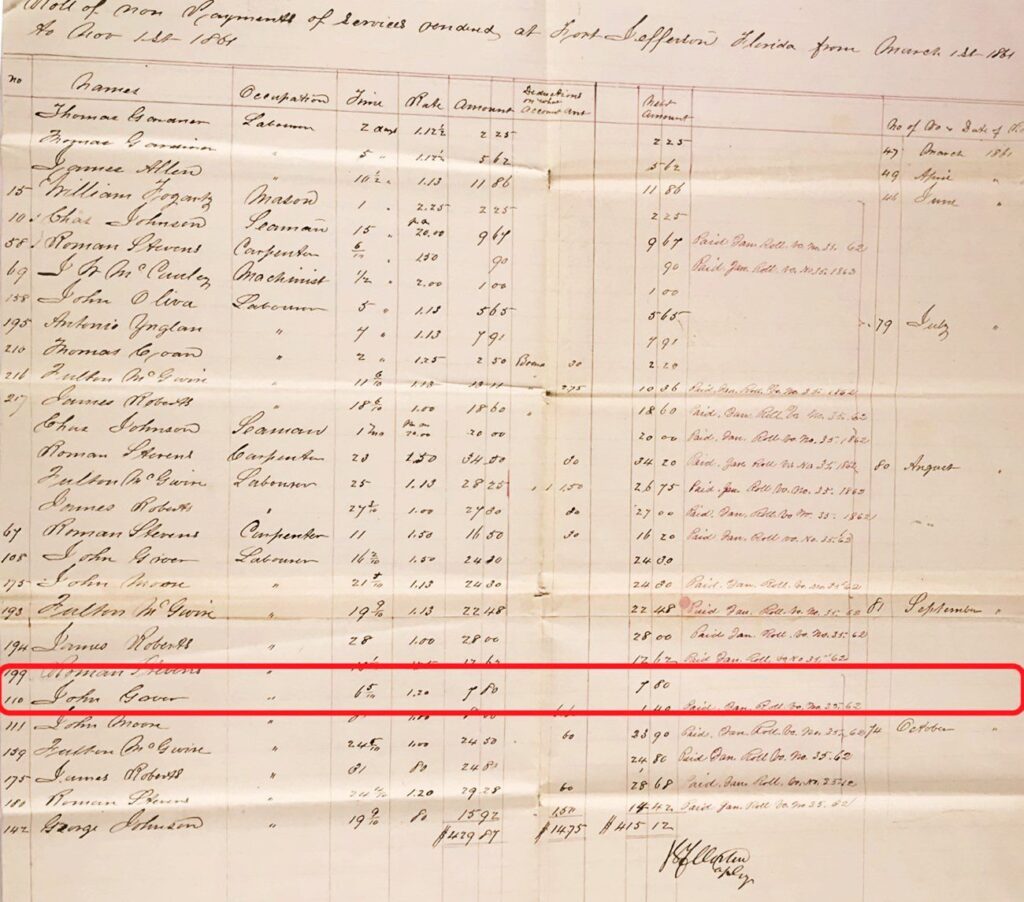 Roll of non Payments of Services rendered at Fort Jefferson Florida from March 1st 1861
to Nov 1st 1861
no Names Occupation Time Rate Amount Deductions on other account amt Nett Amount No of Vo & Date of
Thomas Gardner Labourer 2 days 1.12½ 2 25 2 25 47 March 1861
Thomas Gardiner " 5 " 1.12½ 5 62 5 62 49 April "
James Allen " 10½ " 1.13 11 86 11 86 46 June "
15 William Fogarty Mason 1 " 2.25 2 25 2 25
10 Chas Johnson Seaman 15 " 20.00 9 67 9 67 Paid Jan. Roll. vo. No. 35. 62
58 Roman Stevens Carpenter 6/10 " 150 90 90 Paid Jan. Roll. vo. No. 35. 1862
69 J W McCauley Machinist 1/2 " 2.00 1 00 1 00
158 John Oliva Labourer 5 " 1.13 5 65 5 65 79 July "
195 Antonio Ynglan " 7 " 1.13 7 91 7 91
210 Thomas " 2 " 1.25 2 50 30 2 20
216 Fulton McGuire " 11 6/10 1.13 13 11 " 2.75 10 36 Paid Jan. Roll Vo. No. 35. 1862
217 James Roberts " 18 6/10 1.00 18 60 " 18 60 Paid. Jan. Roll Vo. No. 35. 62
Chas Johnson Seaman 1 mo 20.00 20 00 20 00 Paid. Jan. Roll. Vo. No. 35. 1862
Roman Stevens Carpenter 23 1.50 34.50 30 34 20 Paid. Jan Roll. Vo. No. 35. 1862 80 August "
Fulton McGuire Labourer 25 1.13 28 25 1.50 26 75 Paid. Jan Roll. Vo. No. 35. 1862
James Roberts " 27 3/10 1.00 27 30 30 27 00 Paid. Jan. Roll Vo. No. 35. 1862
67 Roman Stevens Carpenter 11 1.50 16 50 30 16 20 Paid. Jan. Roll vo. No. 35. 62
108 John Gover Labourer 16 2/10 1.50 24 30 24 30
175 John Moore " 21 1.13 24 30 24 30 Paid. Jan. Roll. vo. no 35. 62
193 Fulton McGuire " 19 9/10 1.13 22.48 22 48 Paid. Jan. Roll. Vo. No. 35. 62 81 September "
194 James Roberts " 28 1.00 28 00 28 00 Paid Jan. Roll. Vo. No. 35. 62
199 Roman Stevens 12 62 12 62 Paid Jan. Roll. Vo. No 35. 62
110 John Gover " 6 5/10 1.20 7 80 7 80
111 John Moore " Paid. Jan. Roll. Vo. No. 35. 62
139 Fulton McGuire " 24 5/10 1.00 24 50 60 23 90 Paid Jan. Roll. Vo. No. 35. 62 74 October "
175 James Roberts " 31 80 24 80 24 80 Paid. Jan Roll. Vo. No. 35. 62
180 Roman Stevens " 24 4/10 1.20 29.28 60 28 68 Paid. Jan Roll. Vo. No. 35. 62
142 George Johnson " 19 9/10 80 15 92 1.50 14 42 Paid Jan. Roll. Vo. No 35. 62
$429 87 $14 75 $415 12